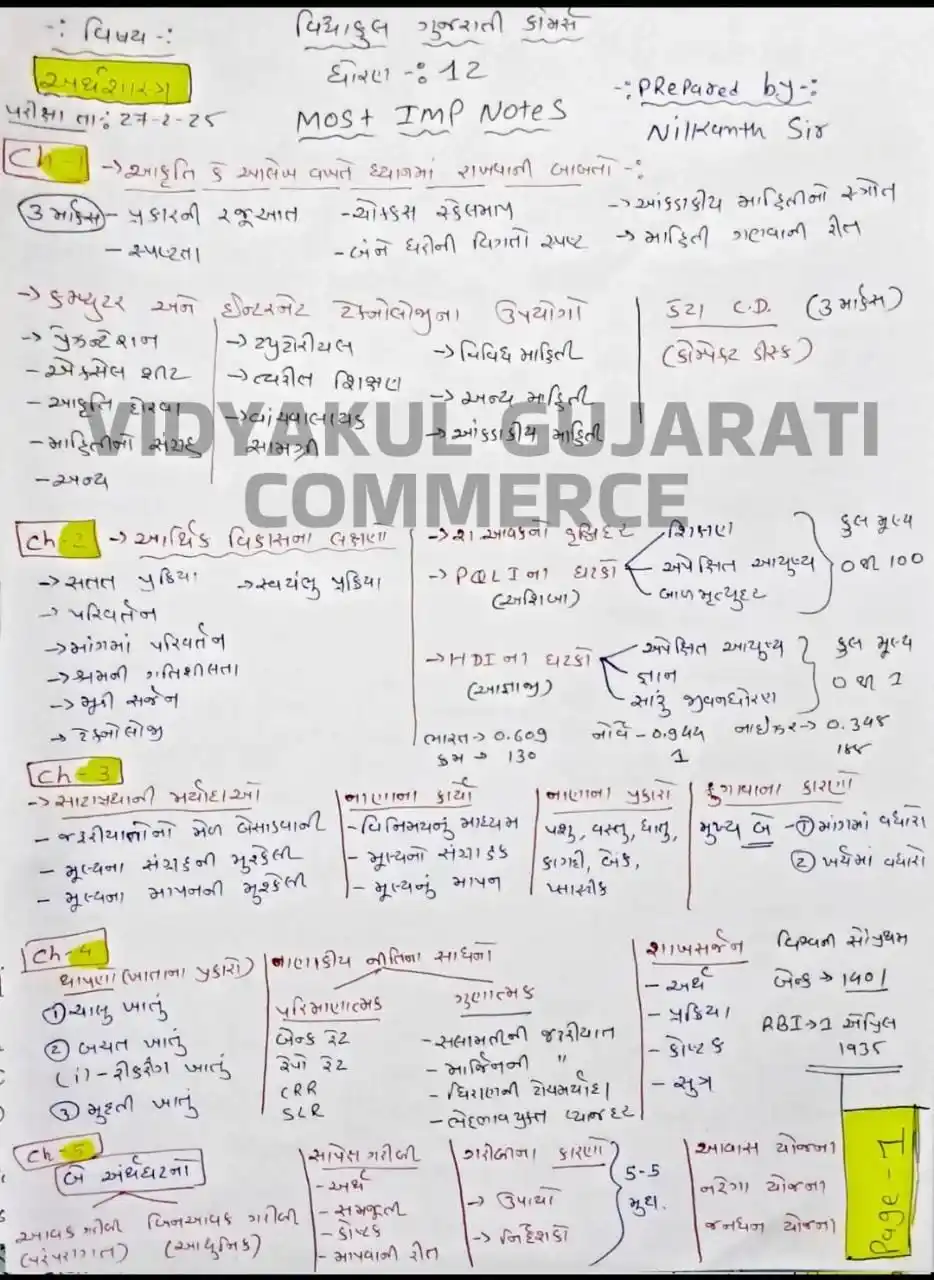 -: વિષય -:
અર્થશાસ્ત્ર
પરીક્ષા તા: 27-2-25
વિદ્યાકુલ ગુજરાતી કોમર્સ
ધોરણ -: 12
MOST IMP NOTES
-: PRepared by -:
Nilkanth Sir
Ch-1 → આકૃતિ કે આલેખ વખતે ધ્યાનમાં રાખવાની બાબતો -:
3 માર્કસ - પ્રકારની રજૂઆત - ચોક્કસ સ્કેલમાપ → આંકડાકીય માહિતીનો સ્ત્રોત
- સ્પષ્ટતા - બંને ધરીની વિગતો સ્પષ્ટ → માહિતી ગણવાની રીત
→ કમ્પ્યુટર અને ઈન્ટરનેટ ટેકનોલોજીના ઉપયોગો
→ પ્રેઝન્ટેશન
- એક્સેલ શીટ
- આકૃતિ દોરવા
- માહિતીનો સંગ્રહ
- અન્ય
→ ટ્યુટોરીયલ
→ ત્વરીત શિક્ષણ
→ વાંચવાલાયક
સામગ્રી
→ વિવિધ માહિતી
→ અન્ય માહિતી
→ આંકડાકીય માહિતી
ડેટા C.D. (3 માર્કસ)
(કોમ્પેક્ટ ડીસ્ક)
VIDYAKUL GUJARATI
COMMERCE
Ch-2 → આર્થિક વિકાસના લક્ષણો
→ સતત પ્રક્રિયા → સ્વયંભુ પ્રક્રિયા
→ પરિવર્તન
→ માંગમાં પરિવર્તન
→ શ્રમની ગતિશીલતા
→ મૂડી સર્જન
→ ટેકનોલોજી
→ રા.આવકનો વૃદ્ધિદર
→ PQLIના ઘટકો
(અશિબા)
શિક્ષણ
અપેક્ષિત આયુષ્ય
બાળ મૃત્યુદર
કુલ મૂલ્ય
0 થી 100
→ HDIના ઘટકો
(આજ્ઞાજી)
અપેક્ષિત આયુષ્ય
જ્ઞાન
સારૂં જીવનધોરણ
કુલ મૂલ્ય
0 થી 1
ભારત → 0.609 નોર્વે - 0.944 નાઈજર → 0.348
ક્રમ → 130 1 188
Ch-3
→ સાટાપ્રથાની મર્યાદાઓ
- જરૂરીયાતોનો મેળ બેસાડવાની
- મૂલ્યના સંગ્રહની મુશ્કેલી
- મૂલ્યના માપનની મુશ્કેલી
નાણાના કાર્યો
- વિનિમયનું માધ્યમ
- મૂલ્યનો સંગ્રાહક
- મૂલ્યનું માપન
નાણાના પ્રકારો
પશુ, વસ્તુ, ધાતુ,
કાગદી, બેંક,
પ્લાસ્ટીક
ફુગાવાના કારણો
મુખ્ય બે - ① માંગમાં વધારો
② ખર્ચમાં વધારો
Ch-4
થાપણો (ખાતાના પ્રકારો)
① ચાલુ ખાતું
② બચત ખાતું
(i) - રીકરીંગ ખાતું
③ મુદ્દતી ખાતું
નાણાકીય નીતિના સાધનો
પરિમાણાત્મક
બેન્ક રેટ
રેપો રેટ
CRR
SLR
ગુણાત્મક
- સલામતીની જરૂરીયાત
- માર્જિનની "
- ધિરાણની ટોચમર્યાદા
- ભેદભાવયુક્ત વ્યાજદર
શાખસર્જન
- અર્થ
- પ્રક્રિયા
- કોષ્ટક
- સુત્ર
વિશ્વની સૌપ્રથમ
બેન્ક → 1401
RBI → 1 એપ્રિલ
1935
Ch-5
બે અર્થઘટનો
આવક ગરીબી બિનઆવક ગરીબી
(પરંપરાગત) (આધુનિક)
સાપેક્ષ ગરીબી
- અર્થ
- સમજૂતી
- કોષ્ટક
- માપવાની રીત
ગરીબીના કારણો
→ ઉપાયો
→ નિર્દેશકો
5-5
મુદ્દા.
આવાસ યોજના
નરેગા યોજના
જનધન યોજના
Page-1